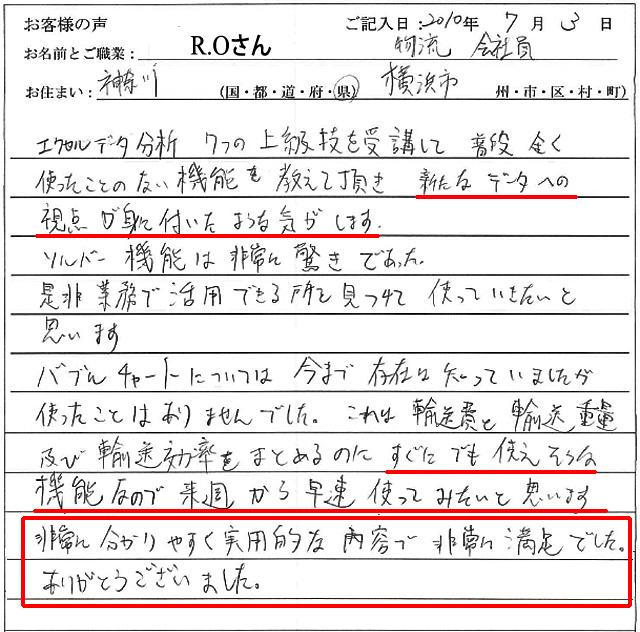 お客様の声 ご記入日：2010年 7月 3日
お名前とご職業： R.Oさん 物流 会社員
お住まい： 神奈川 （国・都・道・府・県） 横浜市 州・市・区・村・町）
エクセルデータ分析 7つの上級技を受講して 普段全く
使ったことのない機能を教えて頂き 新たなデータへの
視点が身に付いたような気がします。
ソルバー機能は非常に驚きであった。
是非業務で活用できる所を見つけて使っていきたいと
思います
バブルチャートについては今まで存在は知っていましたが
使ったことはありませんでした。これは輸送費と輸送重量
及び輸送効率をまとめるのにすぐにでも使えそうな
機能なので来週から早速使ってみたいと思います
非常に分かりやすく実用的な内容で非常に満足でした。
ありがとうございました。